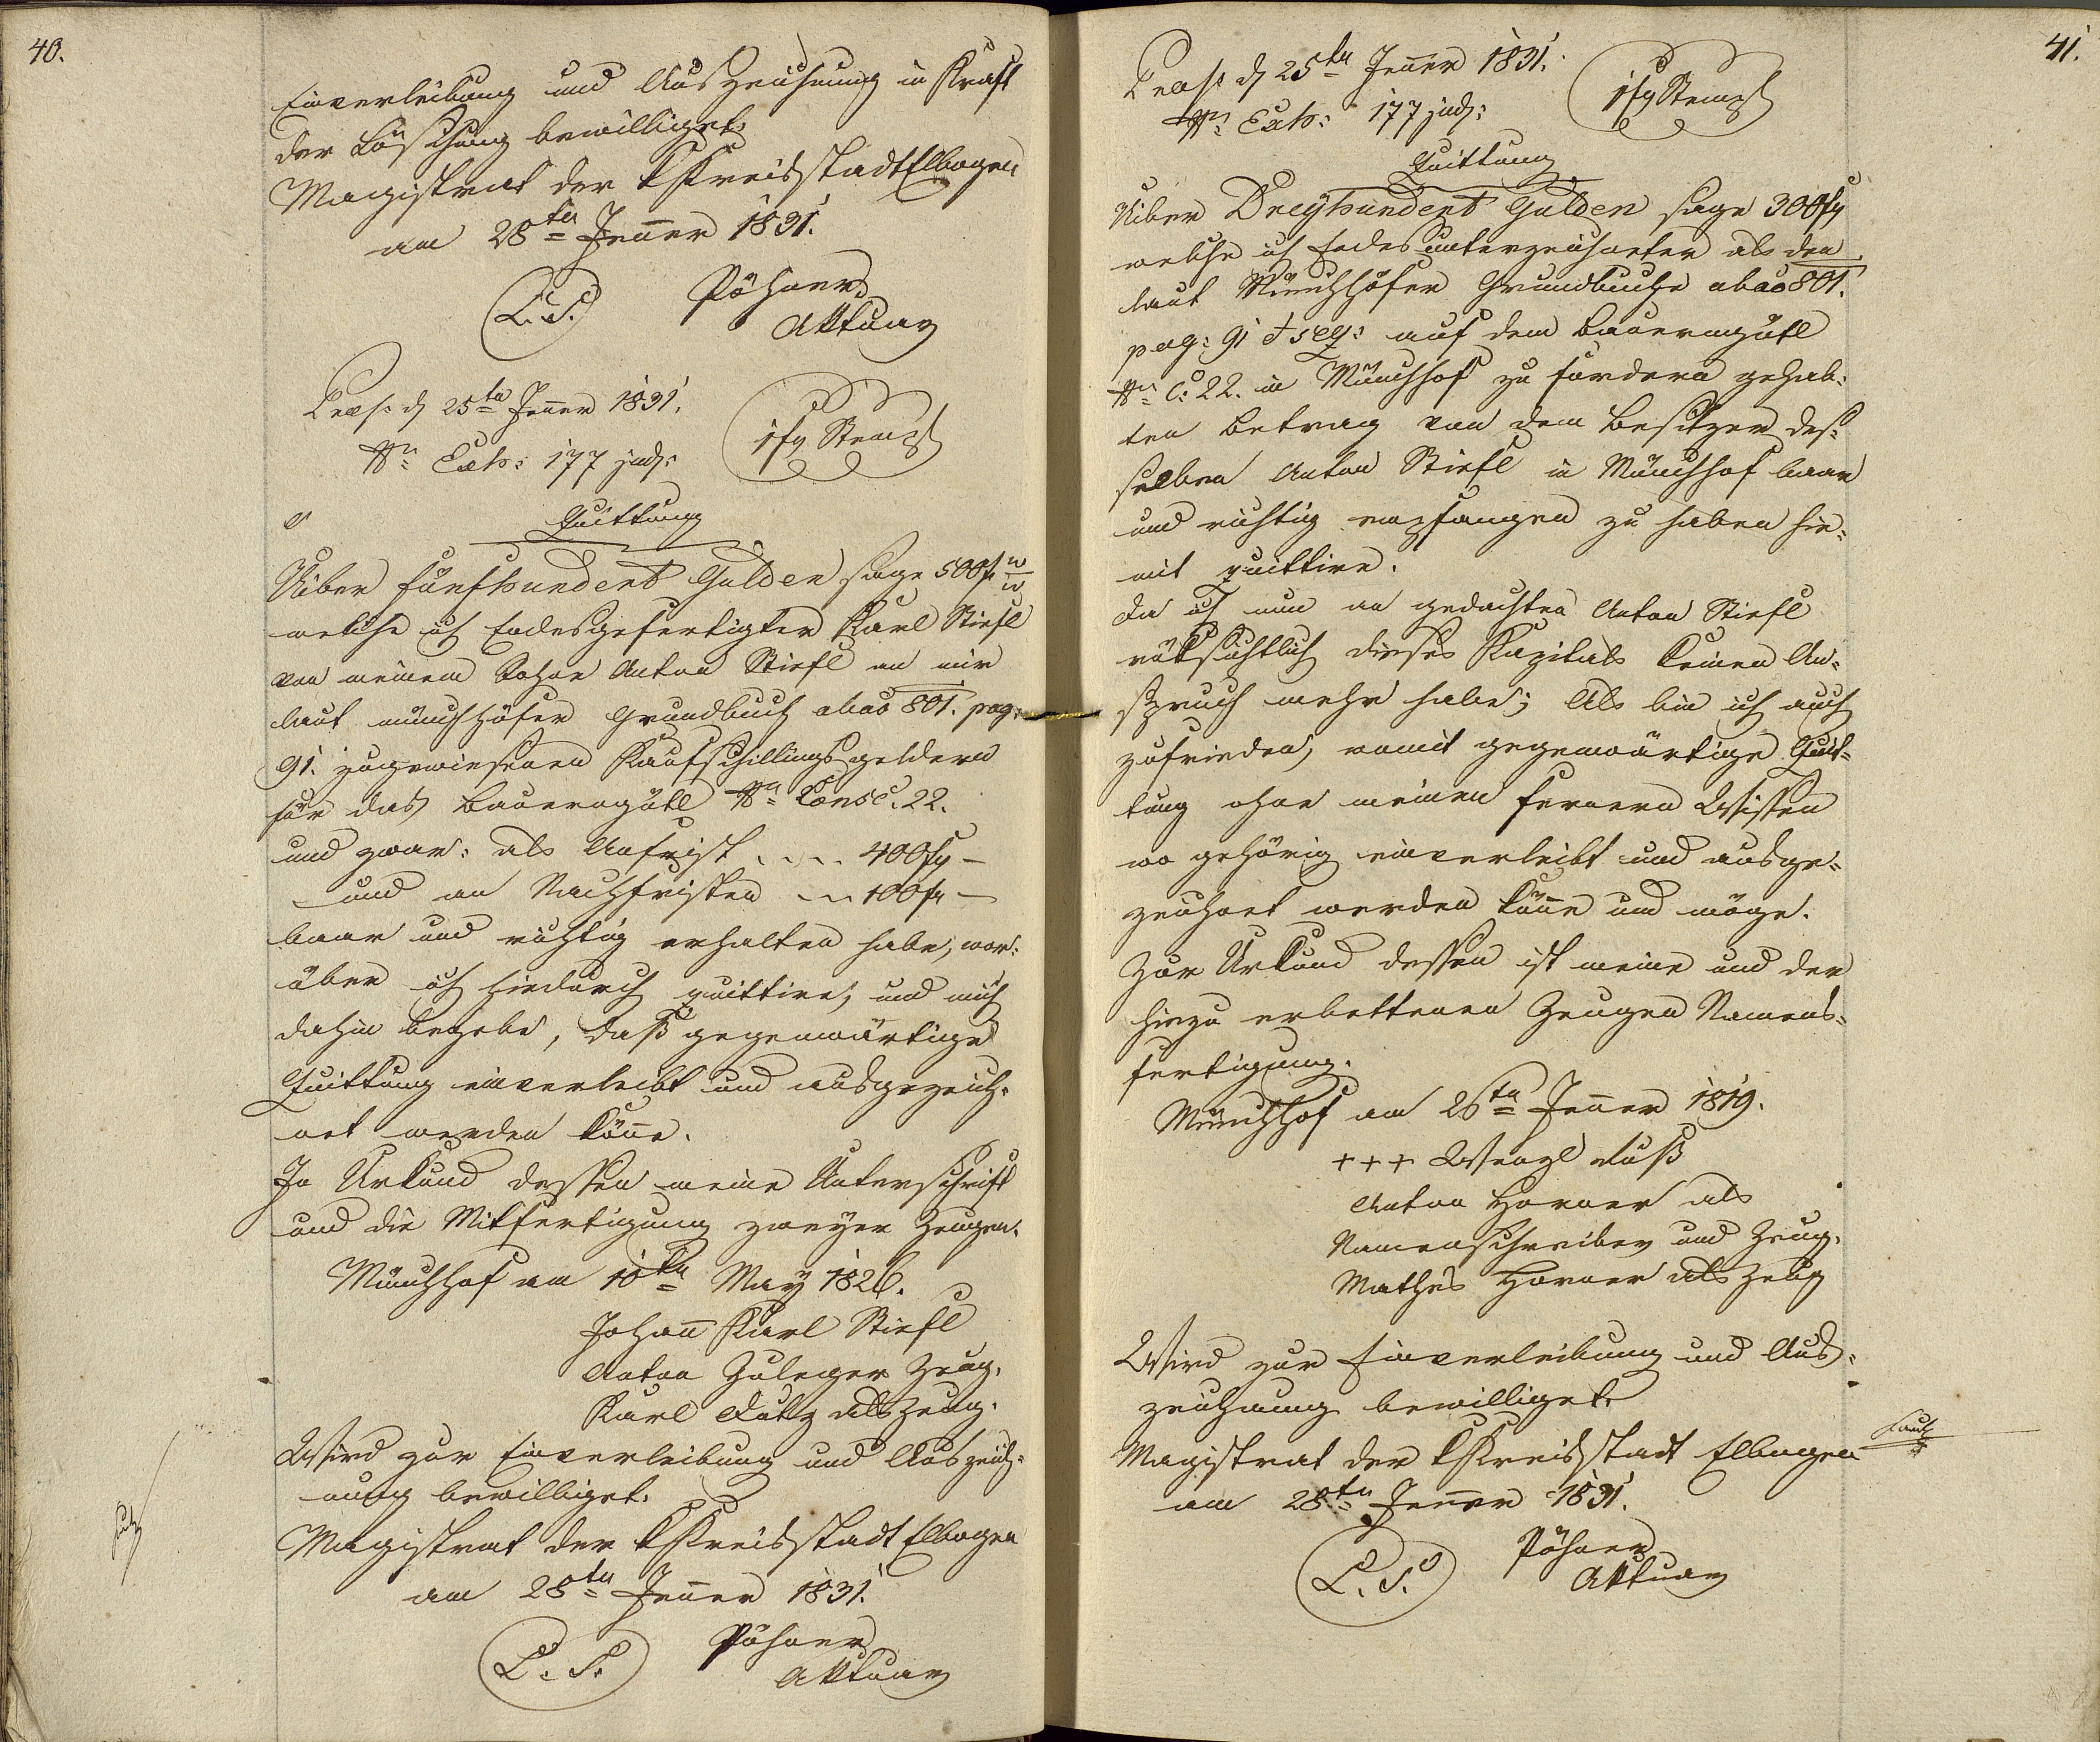 40.
Einverleibung und Auszeichnung in Kraft
der Löschung bewilliget.
Magistrat der k Kreisstadt Elbogen
am 28ten Jenner 1831.
L. S. Pöhner
Aktuar
Praes: d 25ten Jenner 1831.
Nr: Exh: 177 jud:
1 fx Stempl
Quittung
Uiber fünfhundert Gulden sage 500 f w
w
welche ich Endesgefertigter Karl Stiefl
von meinem Sohne Anton Stiefl an mir
laut münchhöfer Grundbuch abao 801. pag:
91. zugewiesenen Kaufschillingsgeldern
für das Bauerngütl Nr: Consc. 22.
und zwar: als Anfrist . . . . 400 f –
und an Nachfristen . . . 100 f –
baar und richtig erhalten habe, wor:
über ich hiedurch quittire, und mich
dahin begebe, daß gegenwärtige
Quittung einverleibt und ausgezeich=
net werden könne.
In Urkund dessen meine Unterschrift
und die Mitfertigung zweyer Zeugen.
Münchhof am 10ten May 1826.
Johann Karl Stiefl
Anton Zuleger Zeug.
Karl Lutz als Zeug.
Wird zur Einverleibung und Auszeich=
nung bewilliget.
Magistrat der k Kreisstadt Elbogen
am 28ten Jenner 1831.
L. S. Pöhner
Aktuar
41.
Praes: d 25ten Jenner 1831.
Nr: Exh: 177 jud:
1 fx Stempl
Quittung
Uiber Dreyhundert Gulden sage 300 f
welche ich Endesunterzeichneter als den
laut Münchhöfer Grundbuche abao 801.
pag: 91 et seq: auf dem Bauerngütl
Nr: C: 22. in Münchhof zu fordern gehab:
ten Betrag von dem Besitzer des:
selben Anton Stiefl in Münchhof baar
und richtig empfangen zu haben hie:
mit quittire.
Da ich nun an gedachten Anton Stiefl
rüksichtlich dieses Kapitals keinen An=
spruch mehr habe; Als bin ich auch
zufrieden, womit gegenwärtige Quit=
tung ohne meinen fernern Wissen
wo gehörig einverleibt und ausge=
zeichnet werden könne und möge.
Zur Urkund dessen ist meine und der
hiezu erbettenen Zeugen Namens=
fertigung.
Münchhof am 26ten Jenner 1819.
+++ Wenzl Luß
Anton Horner als
Namenschreiber und Zeug.
Mathes Horner als Zeug
Wird zur Einverleibung und Aus=
zeichnung bewilliget.
Magistrat der k Kreisstadt Elbogen
am 28ten Jenner 1831.
L. S. Pöhner
Aktuar